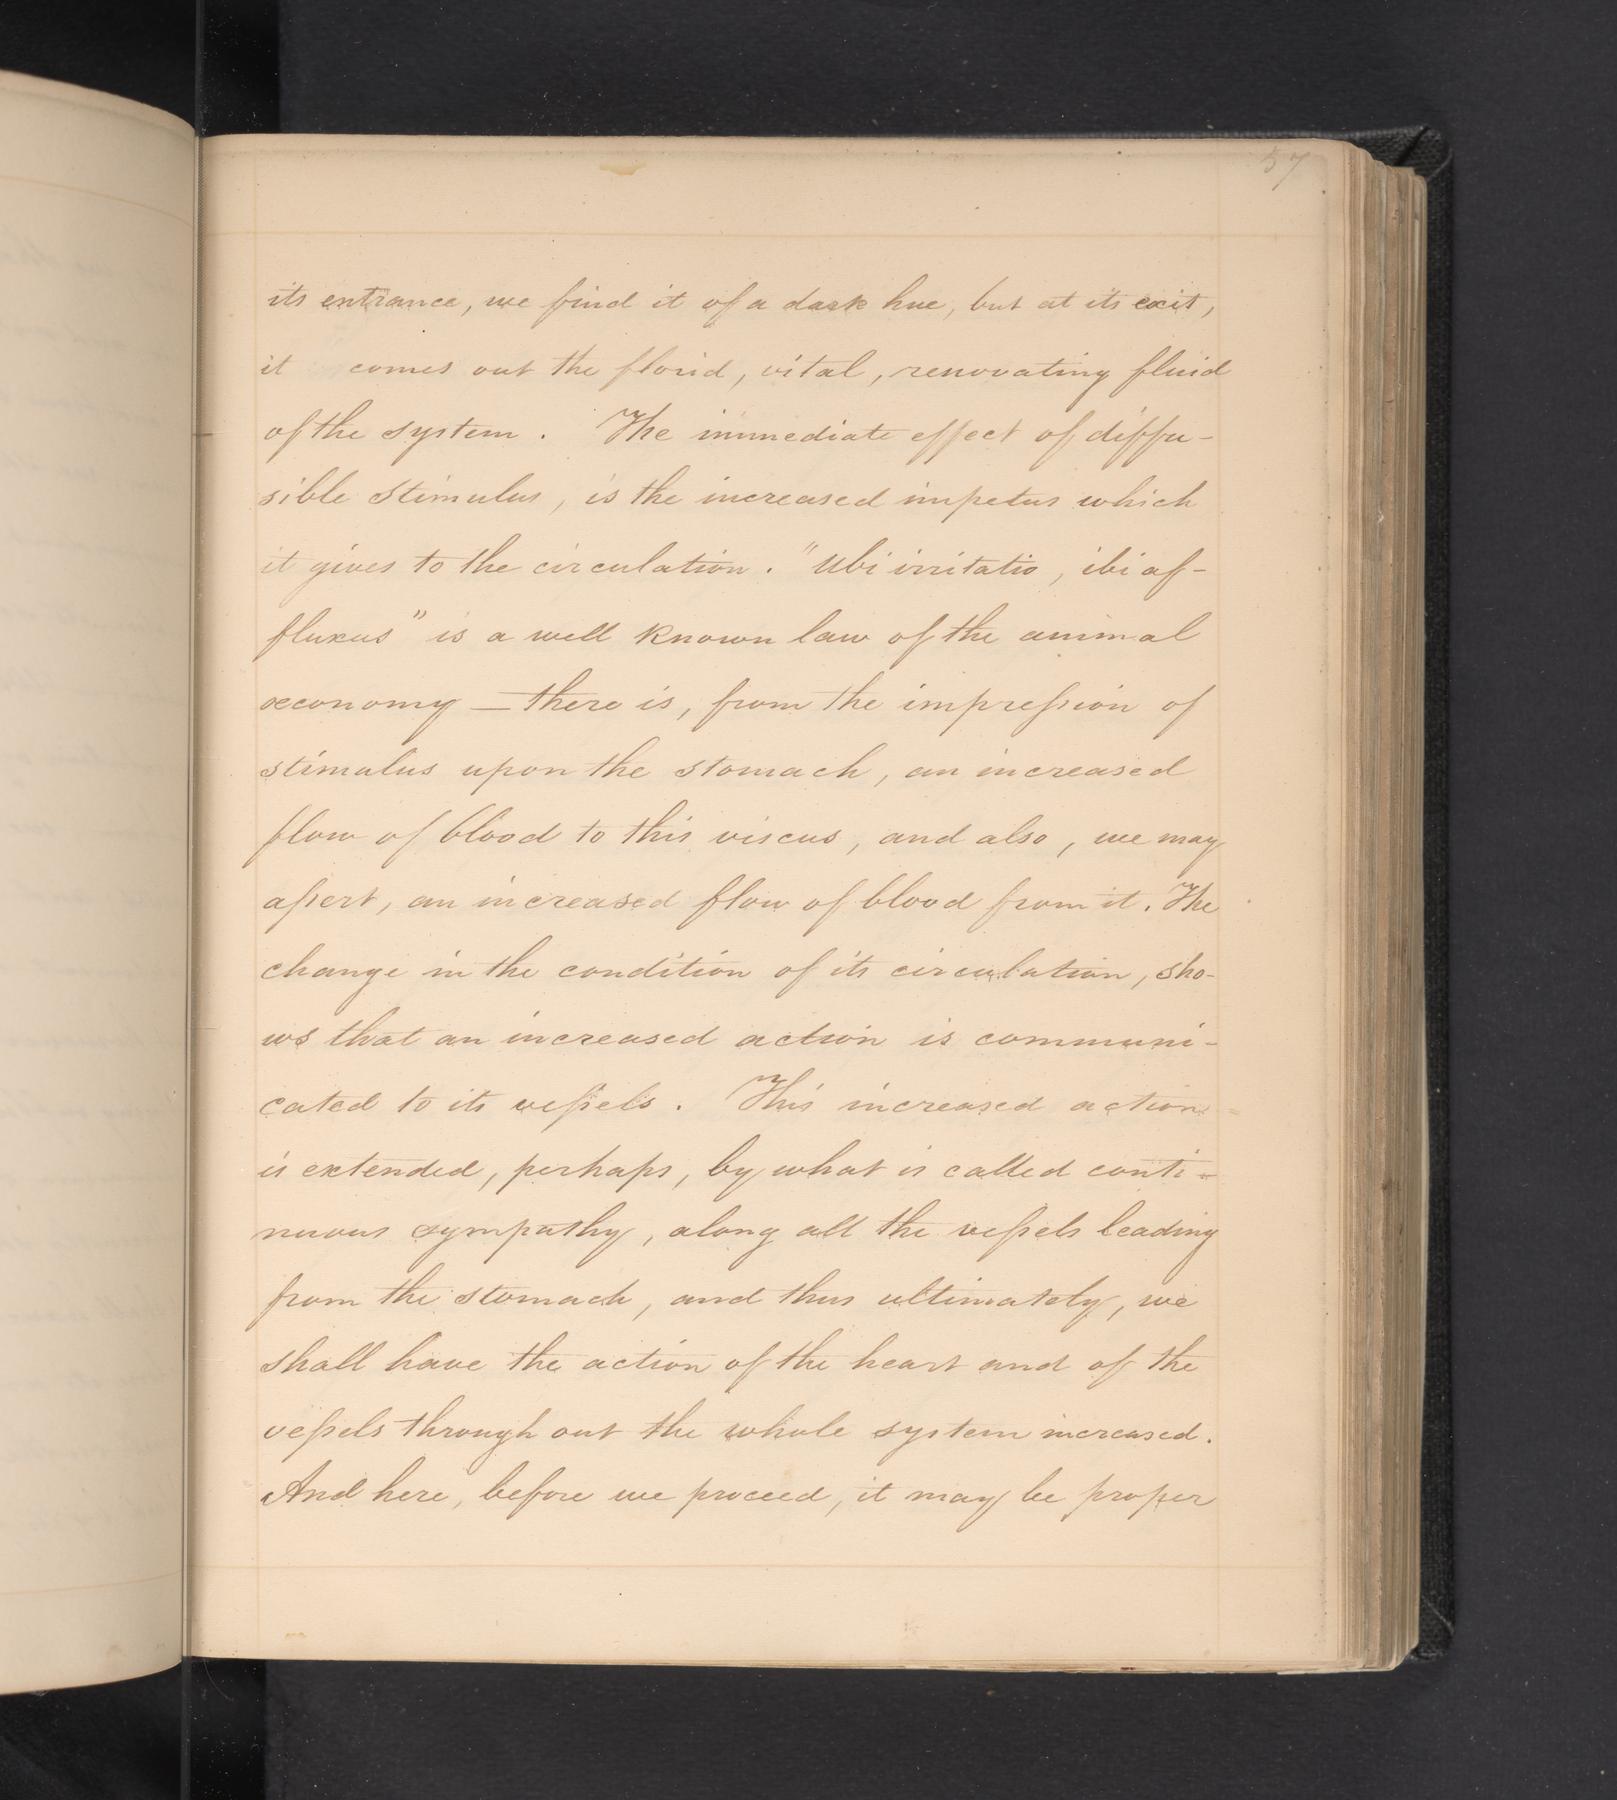 57
its entrance, we find it of a dark hue, but at its exit,
it comes out the florid, vital, renovating fluid
of the system. The immediate effect of diffu-
sible stimulus, is the increased impetus which
it gives to the circulation. "Ubi irritatio, ibi af-
fluxus" is a well known law of the animal
œconomy — there is, from the impreſsion of
stimulus upon the stomach, an increased
flow of blood to this viscus, and also, we may
aſsert, an increased flow of blood from it. The
change in the condition of its circulation, sho-
ws that an increased action is communi-
cated to its veſsels. This increased action
is extended, perhaps, by what is called conti-
nuous sympathy, along all the veſsels leading
from the stomach, and thus ultimately, we
shall have the action of the heart and of the
veſsels through out the whole system increased.
And here, before we proceed, it may be proper